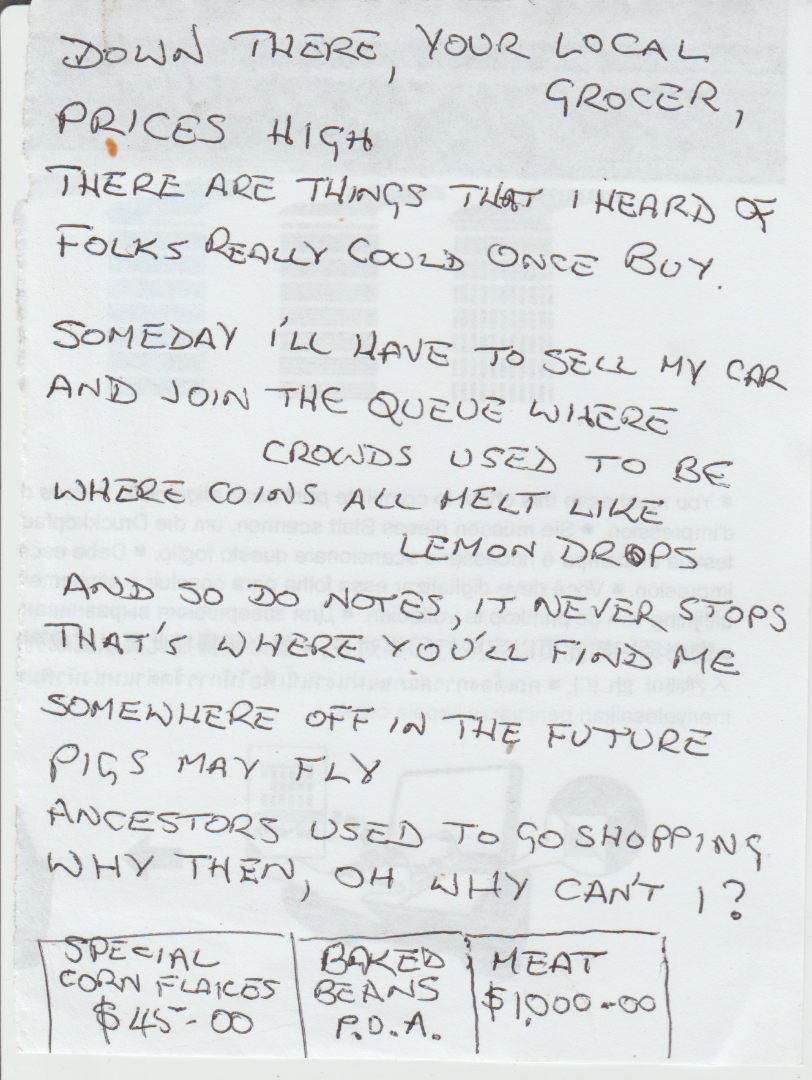 DOWN THERE, YOUR LOCAL
GROCER,
PRICES HIGH
THERE ARE THINGS THAT I HEARD OF
FOLKS REALLY COULD ONCE BUY.
SOMEDAY I'LL HAVE TO SELL MY CAR
AND JOIN THE QUEUE WHERE
CROWDS USED TO BE
WHERE COINS ALL MELT LIKE
LEMON DROPS
AND SO DO NOTES, IT NEVER STOPS
THAT'S WHERE YOU'LL FIND ME
SOMEWHERE OFF IN THE FUTURE
PIGS MAY FLY
ANCESTORS USED TO GO SHOPPING
WHY THEN, OH WHY CAN'T I?
SPECIAL
CORN FLAKES
$45-00
BAKED
BEANS
P.D.A.
MEAT
$1,000-00